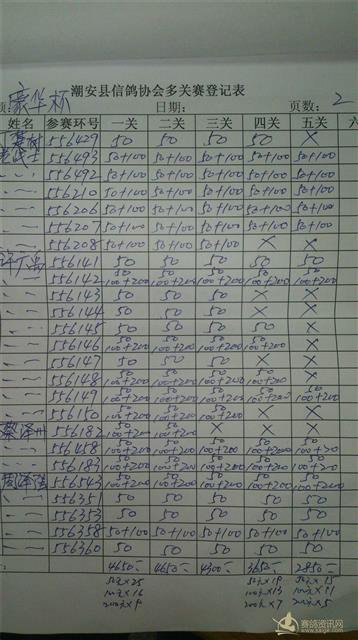 潮安县信鸽协会多关赛登记表
豪华杯 日期: 页数: 2
姓名 参赛环号 一关 二关 三关 四关 五关 六
556429 50 50 50 50 ×
556493 50+100 50+100 50+100 50+100 50+100
556492 50+100 50+100 50+100 50+100 50+100
556210 50+100 50+100 50+100 50+100 50+100
556206 50+100 50+100 50+100 50+100 50+100
556207 50+100 50+100 50+100 50+100 50+100
556208 50+100 50+100 50+100 × ×
556141 50 50 50 50 50
556142 50 100+200 50 100+200 50 100+200 50 100+200 50 100+200
556143 50 50 50 × ×
556144 50 50 50 × ×
556145 50 50 50 50 ×
556146 50 100+200 50 100+200 50 100+200 50 100+200 ×
556147 50 50 50 × ×
556148 50 100+200 50 100+200 50 100+200 50 100+200 ×
556149 50 100+200 50 100+200 50 100+200 50 100+200 50 100+200
556150 50 100+200 50 100+200 50 100+200 × ×
蔡泽州 556182 50 100+200 50 100+200 × × ×
556458 50 100+200 50 100+200 50 100+200 50 100+200
556183 50 100+200 50 100+200 50 100+200 50 100+200 50 100+200
556543 50 100+200 50 100+200 50 100+200 50 100+200 50 100+200
556351 50 50 50 50 50
556353 50 50 50 50 50
556358 50+100 50+100 50+100 50+100 50+100
556360 50 50 50 50 50
4650 4650 4300 3650 2850
50元×25 50元×19 50元×15
100元×16 100元×13 100元×11
200元×9 200元×7 200元×5
赛鸽资讯网